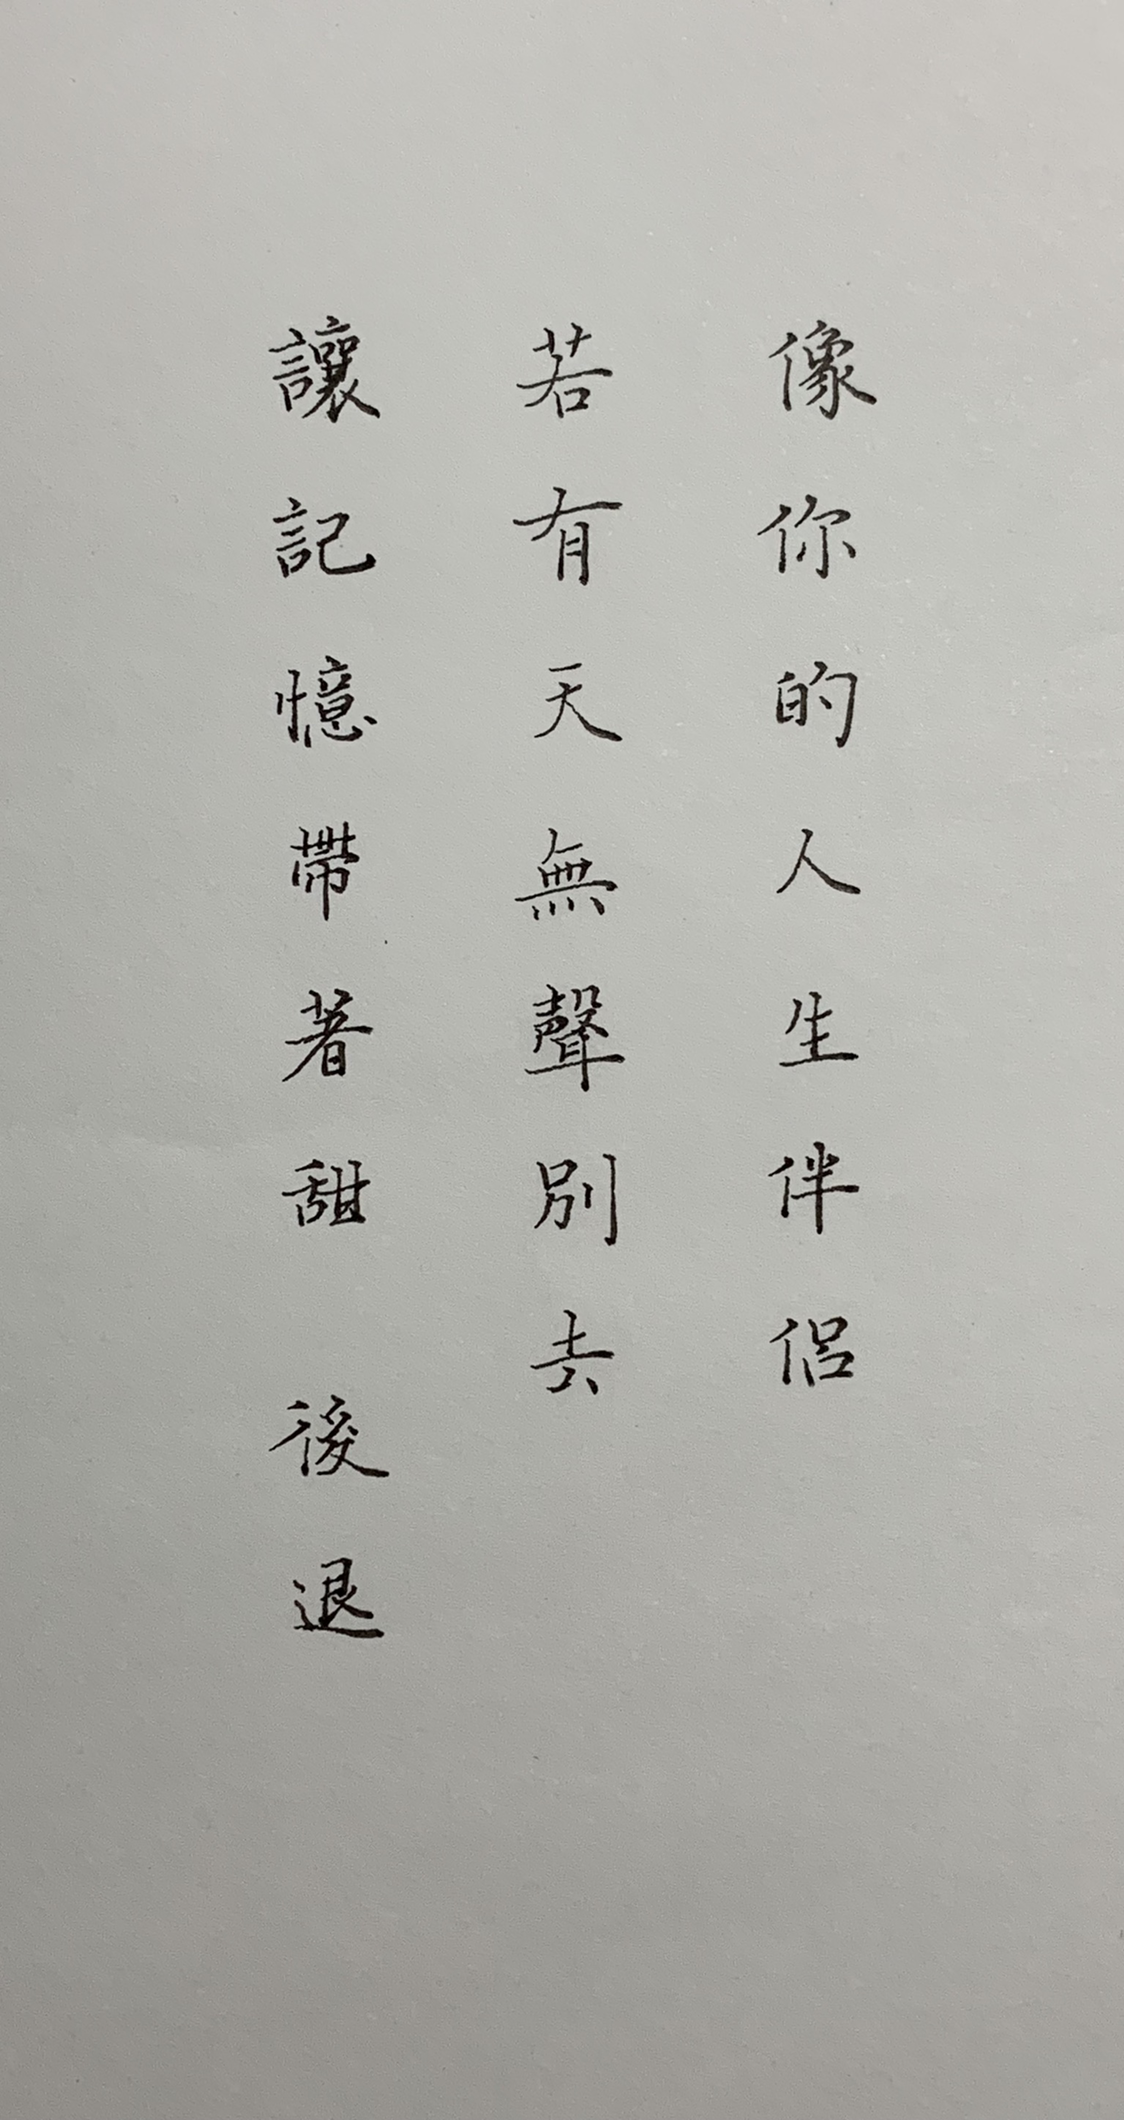 像你的人生伴侶
若有天無聲別去
讓記憶帶著甜 後退